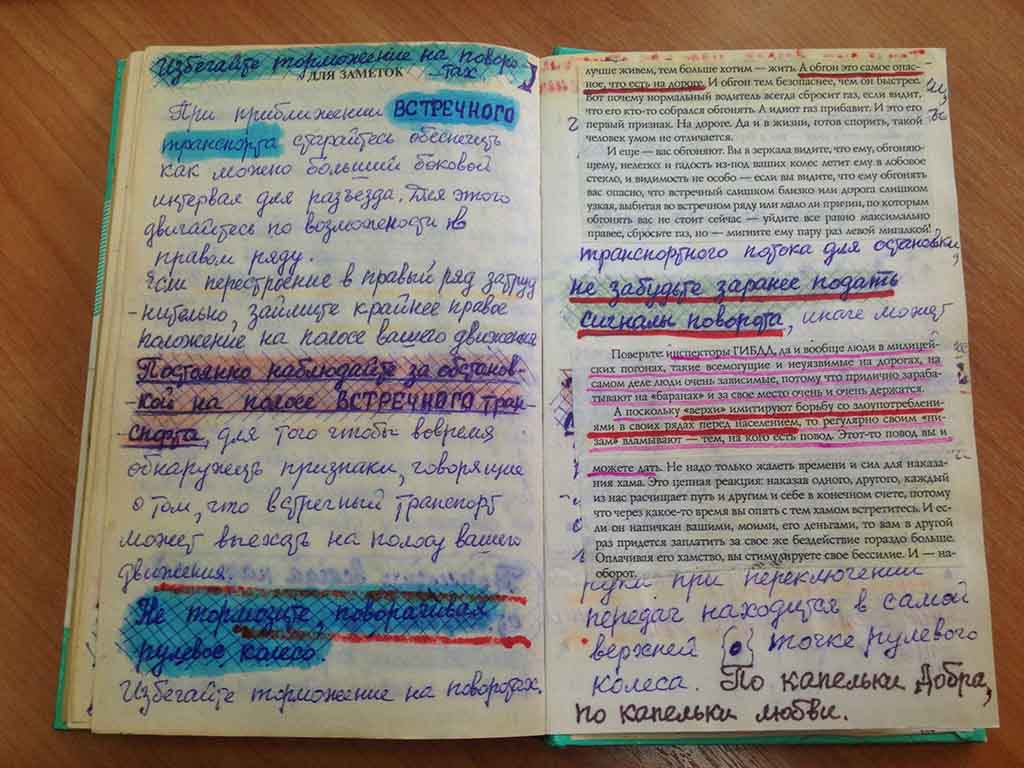 Избегайте торможение на поворо-
тах
ДЛЯ ЗАМЕТОК
При приближении ВСТРЕЧНОГО
транспорта старайтесь обеспечить
как можно больший боковой
интервал для разъезда. Для этого
двигайтесь по возможности в
правом ряду.
Если перестроение в правый ряд затруд
-нительно, займите крайнее правое
положение на полосе вашего движения
Постоянно наблюдайте за обстанов-
-кой на полосе ВСТРЕЧНОГО тран-
-спорта, для того чтобы вовремя
обнаружець признаки, говорящие
о том, что встречный транспорт
может выехать на полосу вашего
движения.
Не тормозите, поворачивая
рулевое колесо.
Избегайте торможение на поворотах.
лучше живем, тем больше хотим — жить. А обгон это самое опас-
ное, что есть на дороге. И обгон тем безопаснее, чем он быстрее.
Вот почему нормальный водитель всегда сбросит газ, если видит,
что его кто-то собрался обгонять. А идиот газ прибавит. И это его
первый признак. На дороге. Да и в жизни, готов спорить, такой
человек умом не отличается.
И еще — вас обгоняют. Вы в зеркала видите, что ему, обгоняю-
щему, нелегко: и гадость из-под ваших колес летит ему в лобовое
стекло, и видимость не особо — если вы видите, что ему обгонять
вас опасно, что встречный слишком близко или дорога слишком
узкая, выбитая во встречном ряду или мало ли причин, по которым
обгонять вас не стоит сейчас — уйдите все равно максимально
правее, сбросьте газ, но — мигните ему пару раз левой мигалкой!
транспортного потока для остановки,
не забудьте заранее подать
сигналы поворота, иначе может
Поверьте инспекторы ГИБДД, да и вообще люди в милицей-
ских погонах, такие всемогущие и неуязвимые на дорогах, на
самом деле люди очень зависимые, потому что прилично зараба-
тывают на «баранах» и за свое место очень и очень держатся.
А поскольку «верхи» имитируют борьбу со злоупотреблени-
ями в своих рядах перед населением, то регулярно своим «ни-
зам» вламывают — тем, на кого есть повод. Этот-то повод вы и
можете дать. Не надо только жалеть времени и сил для наказа-
ния хама. Это цепная реакция: наказав одного, другого, каждый
из нас расчищает путь и другим и себе в конечном счете, потому
что через какое-то время вы опять с тем хамом встретитесь. И ес-
ли он напичкан вашими, моими, его деньгами, то вам в другой
раз придется заплатить за свое же бездействие гораздо больше.
Оплачивая его хамство, вы стимулируете свое бессилие. И — на-
оборот.
руки при переключении
передач находится в самой
верхней точке рулевого
колеса. По капельки Добра,
по капельки любви.